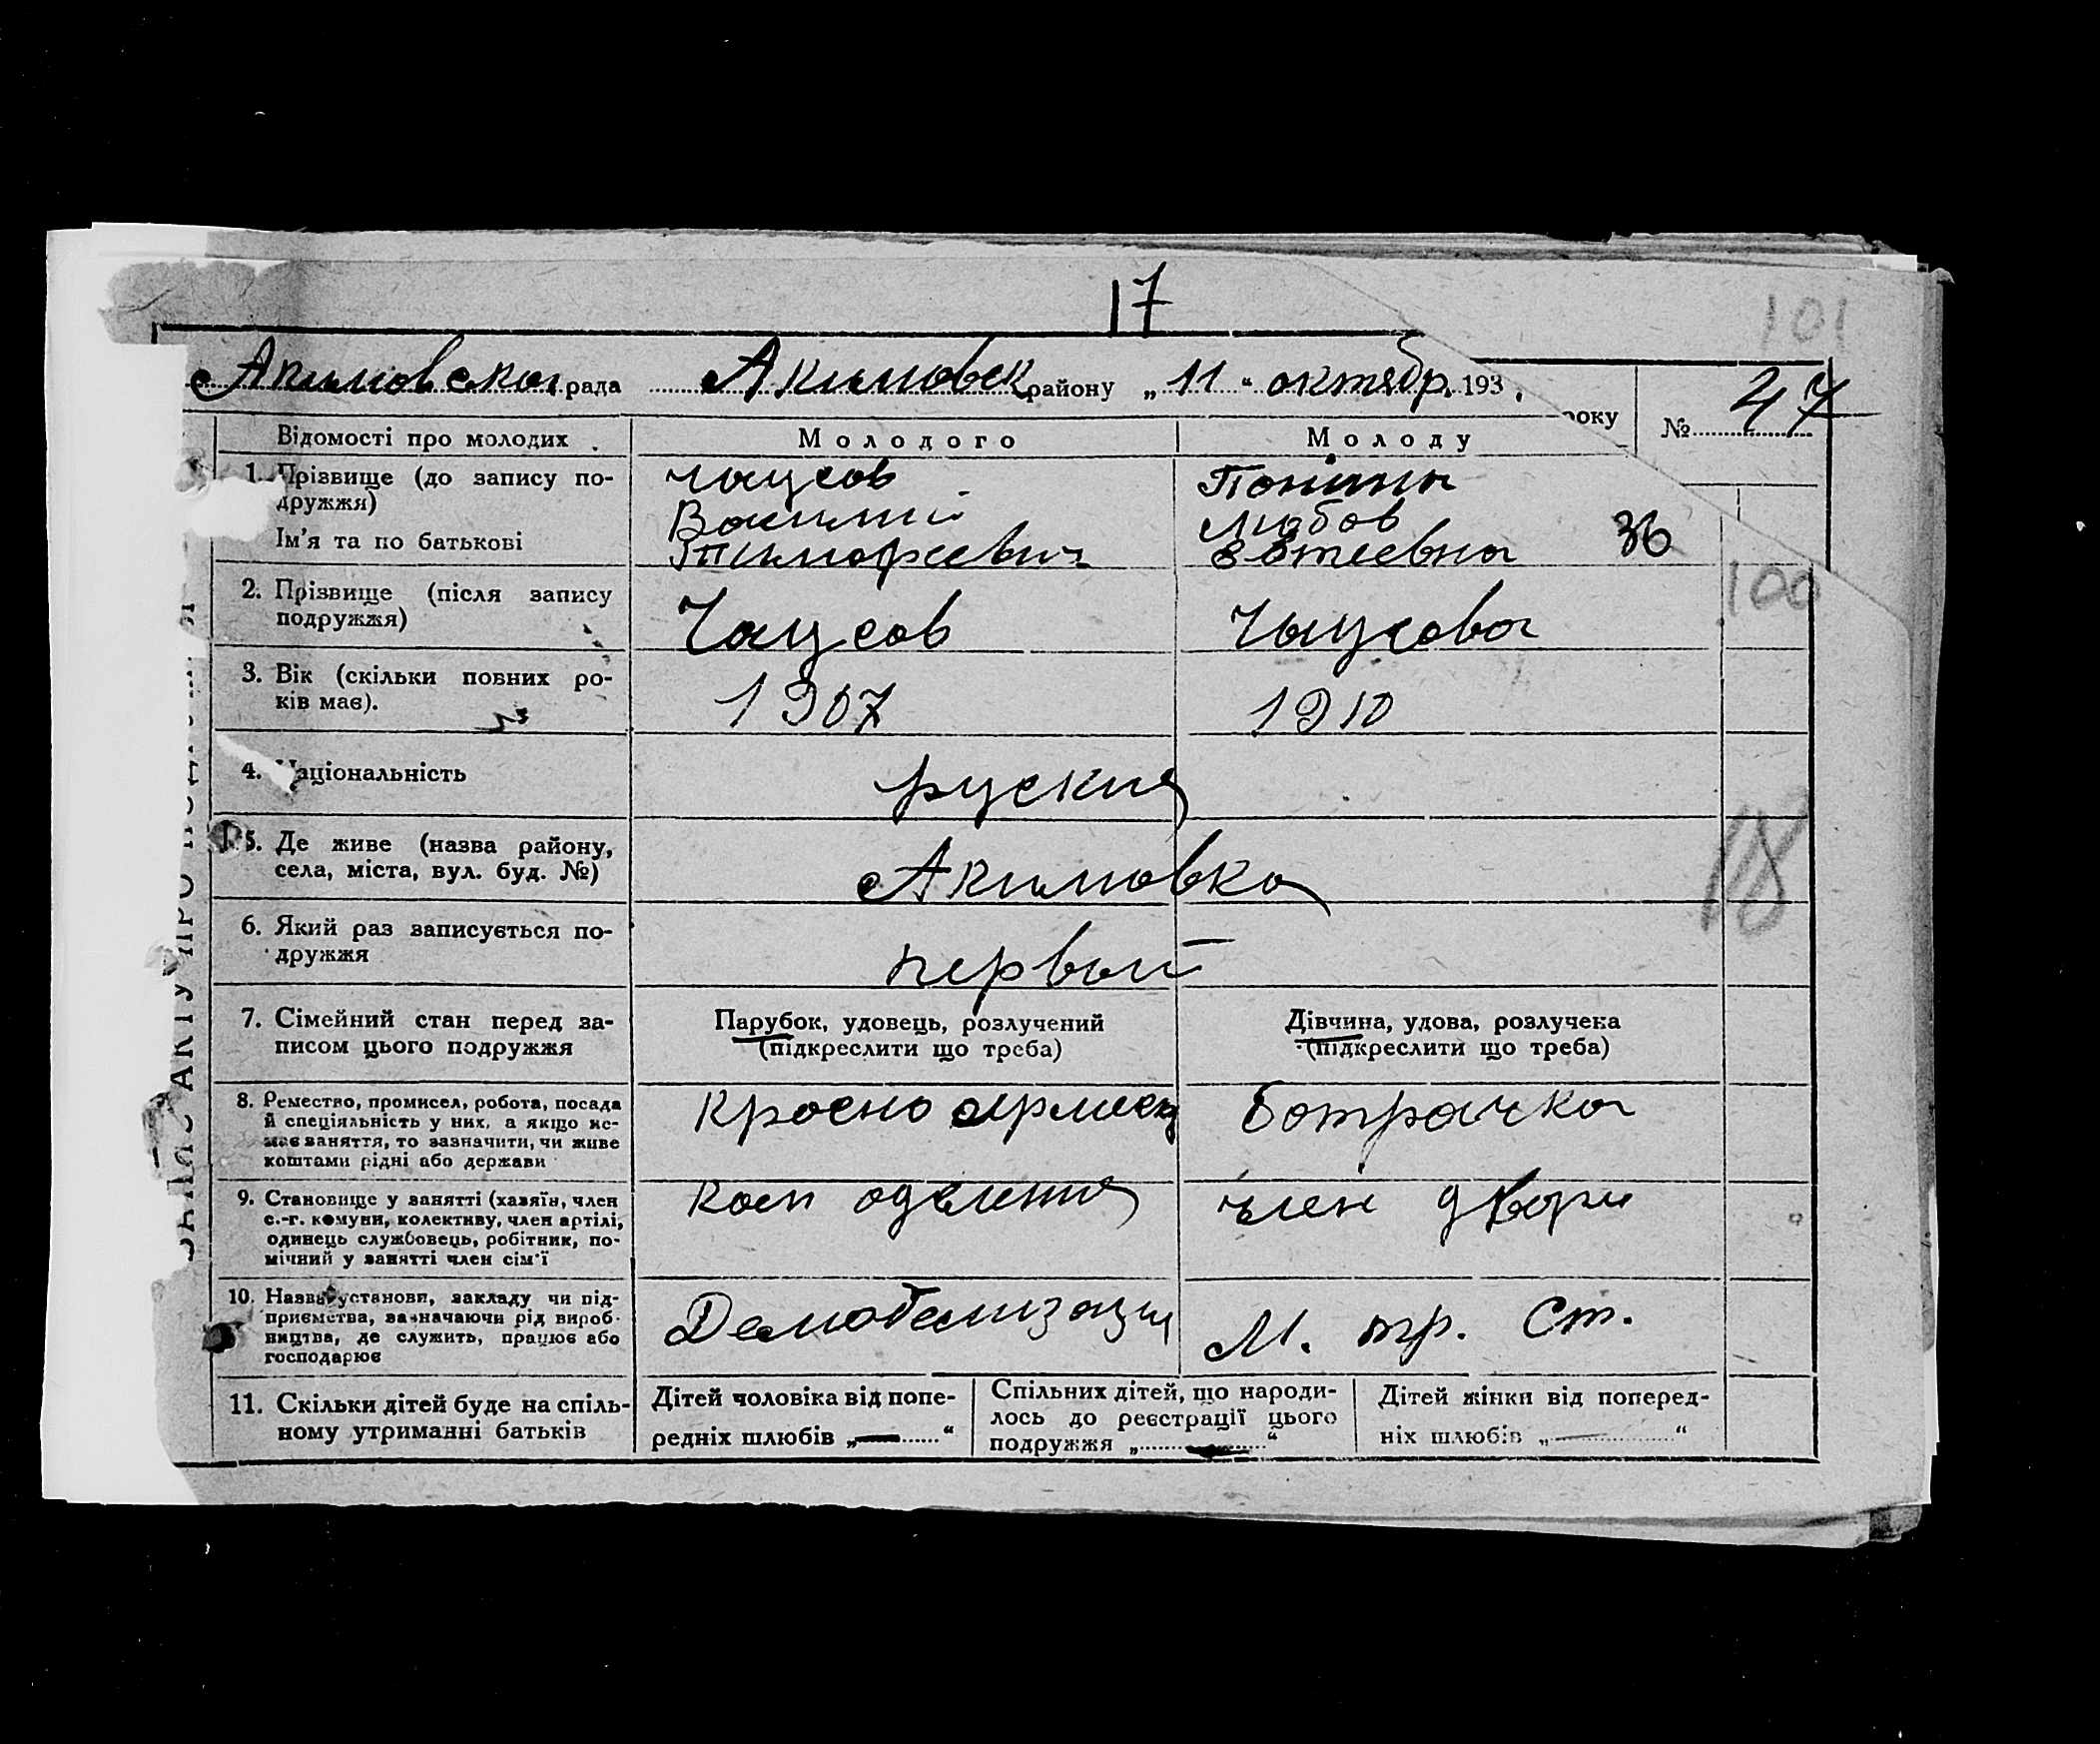 17
101
Акимовская рада Акимовск району „11“ октябр. 193
року № 47
Відомості про молодих Молодого Молоду
1. Прізвище (до запису по- Чаусов Поніна
дружжя) Василий Любов 36
Ім'я та по батькові Тимофеевич
2. Прізвище (після запису Чаусов Чаусова 100
подружжя)
3. Вік (скільки повних ро- 1907 1910
ків має).
4. Національність руския
5. Де живе (назва району, Акимовка 118
села, міста, вул. буд. №)
6. Який раз записується по- первый
дружжя
7. Сімейний стан перед за- Парубок, удовець, розлучений Дівчина, удова, розлучека
писом цього подружжя (підкреслити що треба) (підкреслити що треба)
8. Ремество, промисел, робота, посада красно армеец батрачка
й спеціяльність у них, а якщо не-
має заняття, то зазначити, чи живе
коштами рідні або держави
9. Становище у занятті (хазяїн, член ком оделения член двора
с.-г. комуни, колективу, член артілі,
одинець службовець, робітник, по-
мічний у занятті член сім'ї
10. Назва установи, закладу чи під- М. тр. Ст.
приємства, зазначаючи рід вироб-
ництва, де служить, працює або
господарює
11. Скільки дітей буде на спіль- Дітей чоловіка від попе- Спільних дітей, що народи- Дітей жінки від поперед-
ному утриманні батьків редніх шлюбів „—“ лось до реєстрації цього ніх шлюбів „—“
подружжя „—“